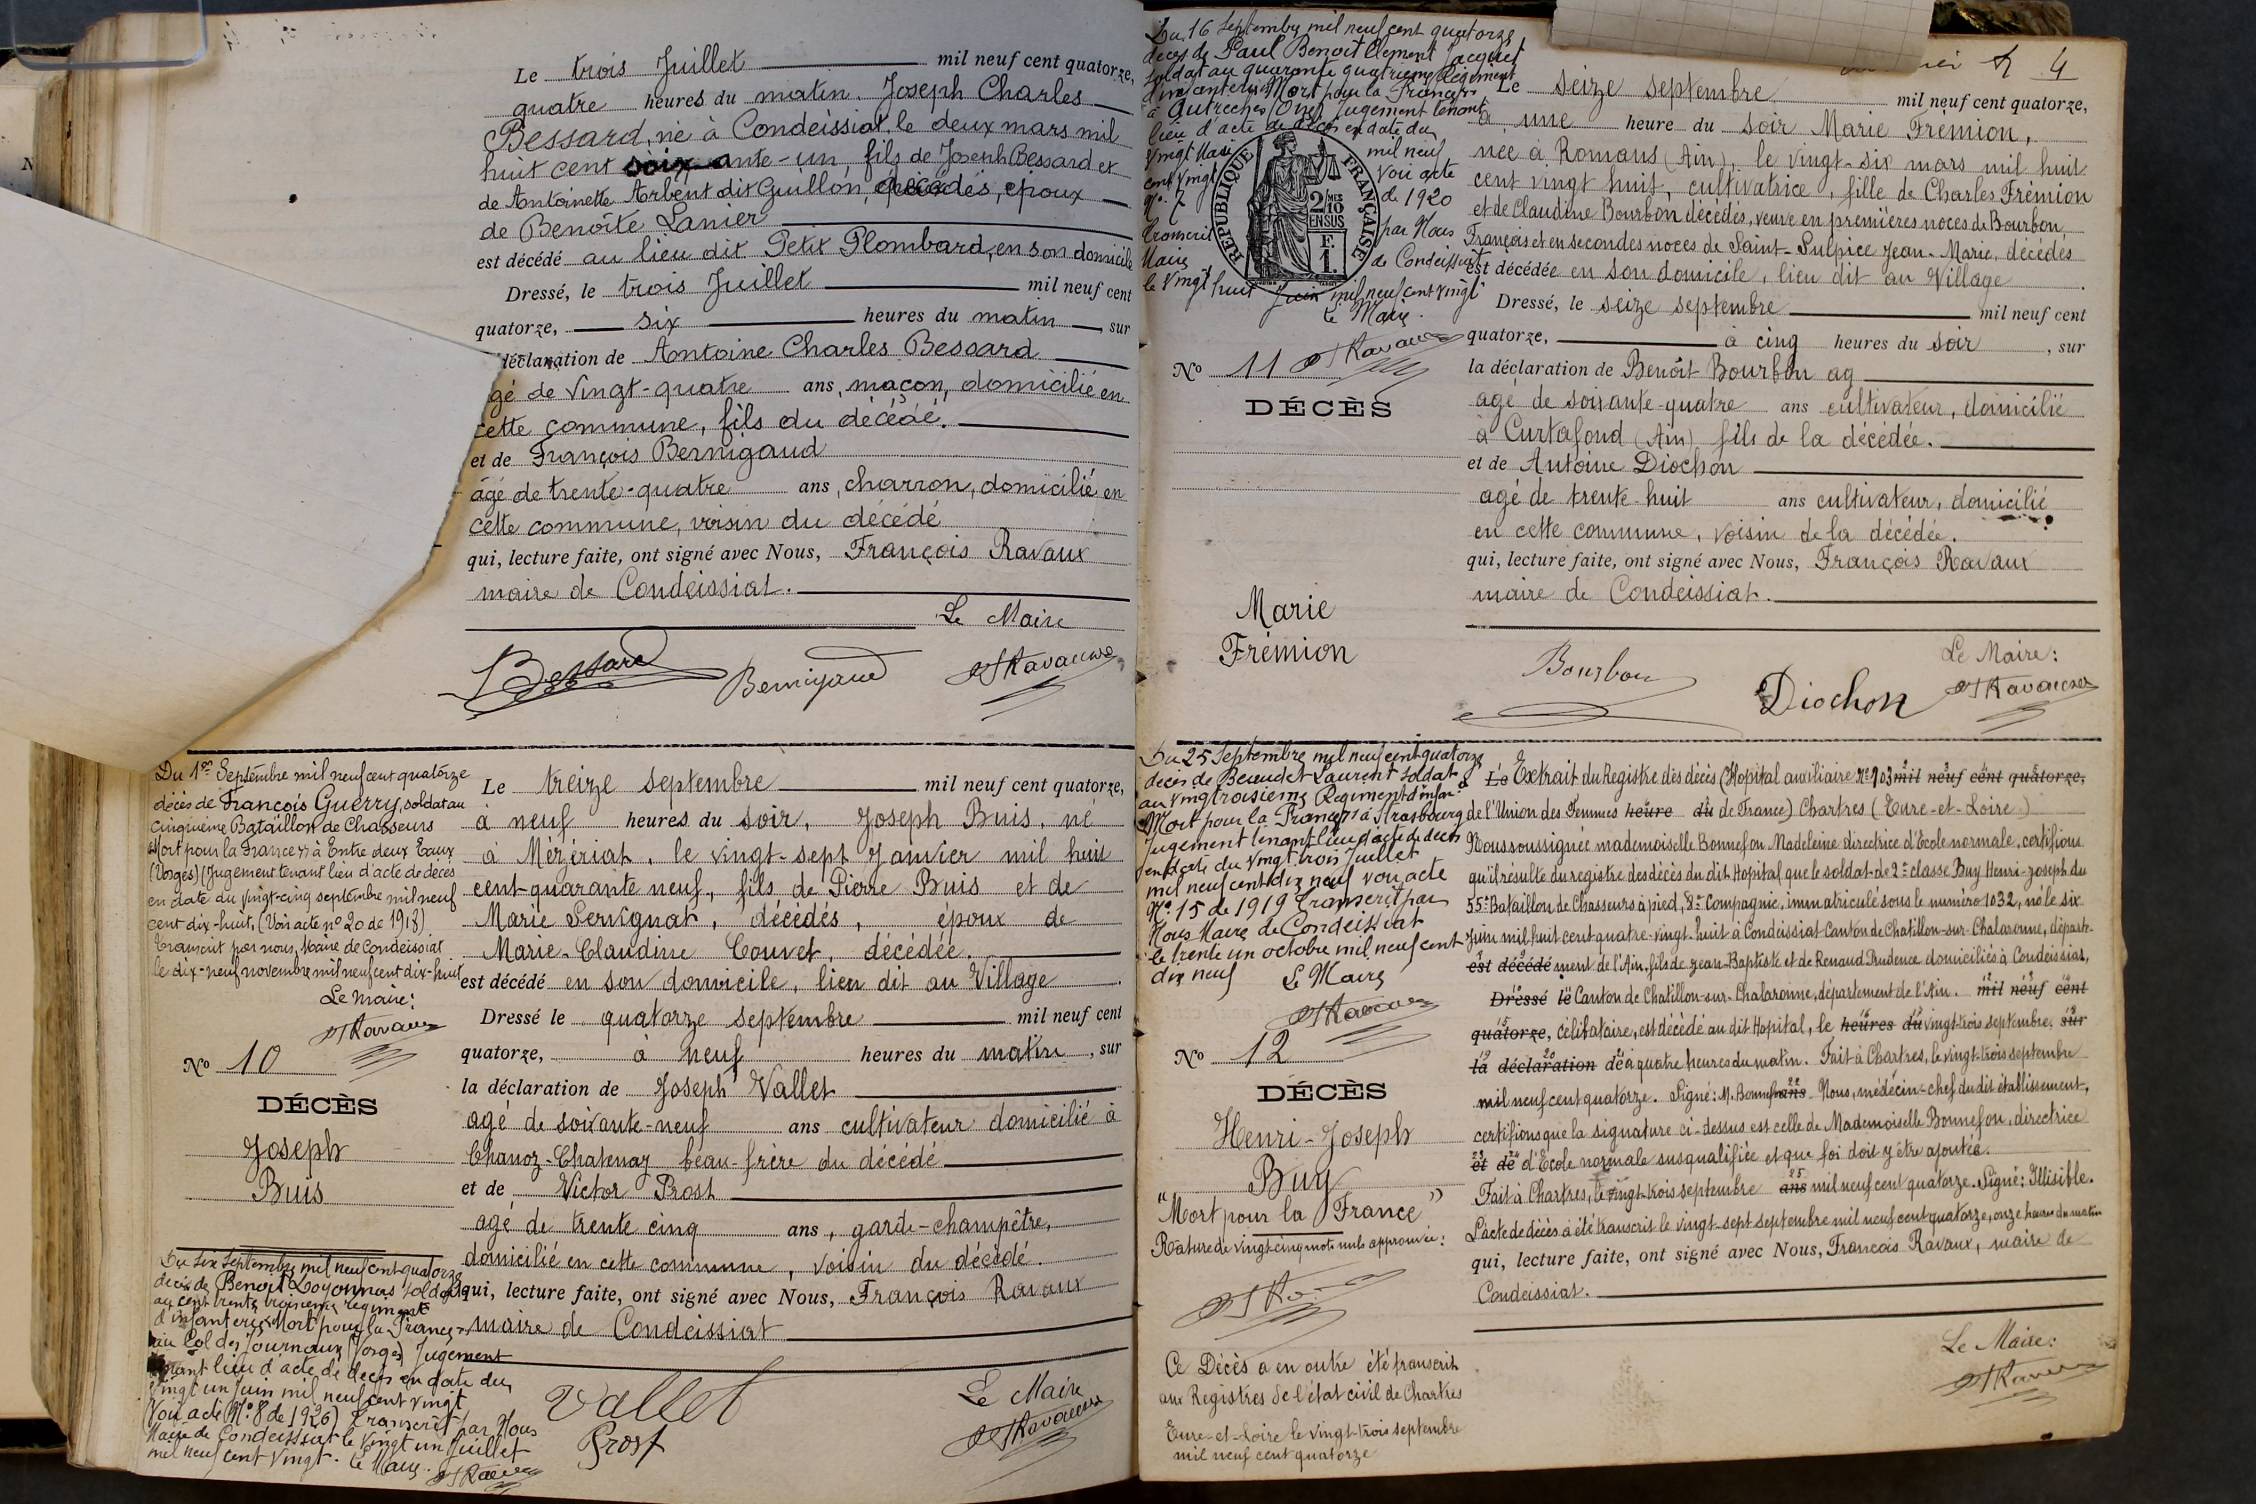 Le trois Juillet mil neuf cent quatorze,
quatre heures du matin. Joseph Charles
Bessard, né à Condeissiat, le deux mars mil
huit cent soixante-un, fils de Joseph Bessard et
de Antoinette Arbent dit Guillon, décédés, époux
de Benoîte Lanier
est décédé au lieu dit Petit Plombard, en son domicile
Dressé, le trois Juillet mil neuf cent
quatorze, six heures du matin, sur
déclaration de Antoine Charles Bessard
gé de vingt-quatre ans, maçon, domicilié en
cette commune, fils du décédé.
et de François Bernigaud
âgé de trente-quatre ans, charron, domicilié en
cette commune, voisin du décédé
qui, lecture faite, ont signé avec Nous, François Ravaux
maire de Condeissiat.
Le Maire
Bessard Bernigaud Ravaux
Du 1er Septembre mil neuf cent quatorze
décès de François Guerry, soldat au
cinquième Bataillon de Chasseurs
"Mort pour la France" à Entre deux Eaux
(Vosges) (Jugement tenant lieu d'acte de décès
en date du vingt-cinq septembre mil neuf
cent dix-huit, (Voir acte no 20 de 1918)
Transcrit par nous, Maire de Condeissiat
le dix-neuf novembre mil neuf cent dix-huit
Le maire:
Ravaux
No 10
DÉCÈS
Joseph
Buis
Le treize septembre mil neuf cent quatorze,
à neuf heures du soir, Joseph Buis, né
à Mézériat, le vingt-sept Janvier mil huit
cent-quarante neuf, fils de Pierre Buis et de
Marie Servignat, décédés, époux de
Marie-Claudine Couvet, décédée.
est décédé en son domicile, lieu dit au Village.
Dressé le quatorze septembre mil neuf cent
quatorze, à neuf heures du matin, sur
la déclaration de Joseph Vallet
agé de soixante-neuf ans cultivateur domicilié à
Chanoz-Chatenay beau-frère du décédé
et de Victor Prost
agé de trente cinq ans, garde-champêtre,
domicilié en cette commune, voisin du décédé.
qui, lecture faite, ont signé avec Nous, François Ravaux
maire de Condeissiat
Le Maire
Vallet
Prost
Ravaux
Du six Septembre mil neuf cent quatorze
décès de Benoit Loyonnas soldat
au cent trente troisième régiment
d'infanterie "Mort pour la France"
au Col des Journaux (Vosges) Jugement
tenant lieu d'acte de décès en date du
vingt un Juin mil neuf cent vingt
(Voir acte No 8 de 1920) Transcrit par Nous
Maire de Condeissiat le vingt un Juillet
mil neuf cent vingt. Le Maire.
Ravaux
4
Du 16 Septembre mil neuf cent quatorze
décès de Paul Benoit Clement Jacquet
soldat au quarante quatrième Régiment
d'infanterie "Mort pour la France"
à Autreches (Oise) Jugement tenant
lieu d'acte de décès en date du
vingt Mai mil neuf
cent vingt Voir acte
No 7 de 1920
Transcrit par Nous
Maire de Condeissiat
le vingt huit Juin mil neuf cent vingt
Le Maire.
Ravaux
RÉPUBLIQUE FRANÇAISE
2/10
MES
EN SUS
F.
1.
No 11
DÉCÈS
Marie
Frémion
Le seize septembre mil neuf cent quatorze,
à une heure du soir Marie Frémion,
née à Romans (Ain), le vingt-six mars mil huit
cent vingt huit, cultivatrice, fille de Charles Frémion
et de Claudine Bourbon décédés, veuve en premières noces de Bourbon
François et en secondes noces de Saint-Sulpice Jean-Marie, décédés
est décédée en son domicile, lieu dit au Village.
Dressé, le seize septembre mil neuf cent
quatorze, à cinq heures du soir, sur
la déclaration de Benoît Bourbon ag
agé de soixante-quatre ans cultivateur, domicilié
à Curtafond (Ain) fils de la décédée.
et de Antoine Diochon
agé de trente-huit ans cultivateur, domicilié
en cette commune, voisin de la décédée.
qui, lecture faite, ont signé avec Nous, François Ravaux
maire de Condeissiat.
Le Maire:
Bourbon
Diochon
Ravaux
Du 25 Septembre mil neuf cent quatorze
décès de Beaudet Laurent soldat
au vingt troisième Régiment d'infie
"Mort pour la France" à Strasbourg
Jugement tenant lieu d'acte de décès
en date du vingt trois Juillet
mil neuf cent dix neuf voir acte
No 15 de 1919 Transcrit par
Nous Maire de Condeissiat
le trente un octobre mil neuf cent
dix neuf Le Maire
Ravaux
No 12
DÉCÈS
Henri-Joseph
Buy
"Mort pour la France"
Rature de vingt-cinq mots nuls approuvée:
Ce Décès a en outre été transcrit
aux Registres de l'état civil de Chartres
Eure-et-Loire le vingt-trois septembre
mil neuf cent quatorze
Le Extrait du Registre des décès (Hopital auxiliaire No 103 mil neuf cent quatorze,
de l'Union des Femmes heure du de France) Chartres (Eure-et-Loire)
Nous soussignée mademoiselle Bonnefon Madeleine directrice d'Ecole normale, certifions
qu'il résulte du registre des décès du dit Hopital, que le soldat de 2e classe Buy Henri-Joseph du
55e Bataillon de Chasseurs à pied, 8e Compagnie, immatriculé sous le numéro 1032, né le six
Juin mil huit cent quatre-vingt-huit à Condeissiat Canton de Chatillon-sur-Chalaronne, départe-
est décédé ment de l'Ain, fils de Jean-Baptiste et de Renaud Prudence domiciliés à Condeissiat,
Dressé le Canton de Chatillon-sur-Chalaronne, département de l'Ain. mil neuf cent
quatorze, célibataire, est décédé au dit Hopital, le heures du vingt-trois septembre, sur
la déclaration de à quatre heures du matin. Fait à Chartres, le vingt-trois septembre
mil neuf cent quatorze. Signé: M. Bonnefon ans Nous, médecin-chef du dit établissement,
certifions que la signature ci-dessus est celle de Mademoiselle Bonnefon, directrice
et de d'Ecole normale susqualifiée et que foi doit y être ajoutée.
Fait à Chartres, le vingt-trois septembre ans mil neuf cent quatorze. Signé: Illisible.
L'acte de décès a été transcrit le vingt-sept septembre mil neuf cent quatorze, onze heures du matin
qui, lecture faite, ont signé avec Nous, François Ravaux, maire de
Condeissiat.
Le Maire:
Ravaux